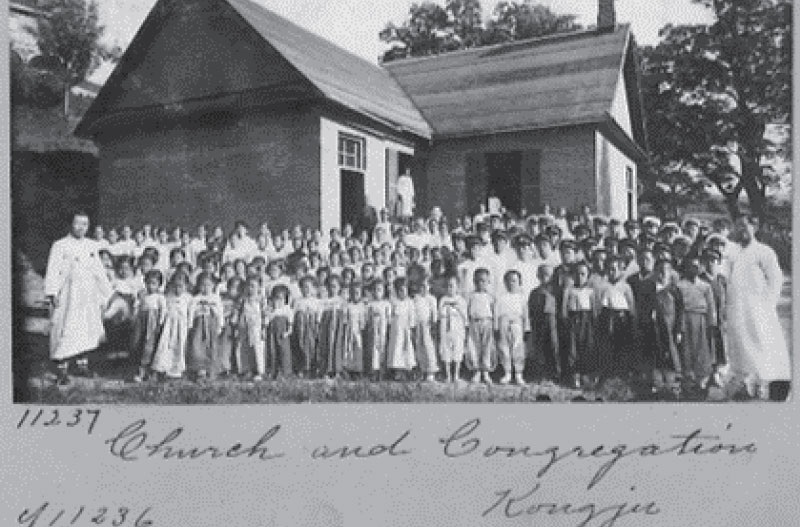 11237
Church and Congregation
Kongju
cf 11236